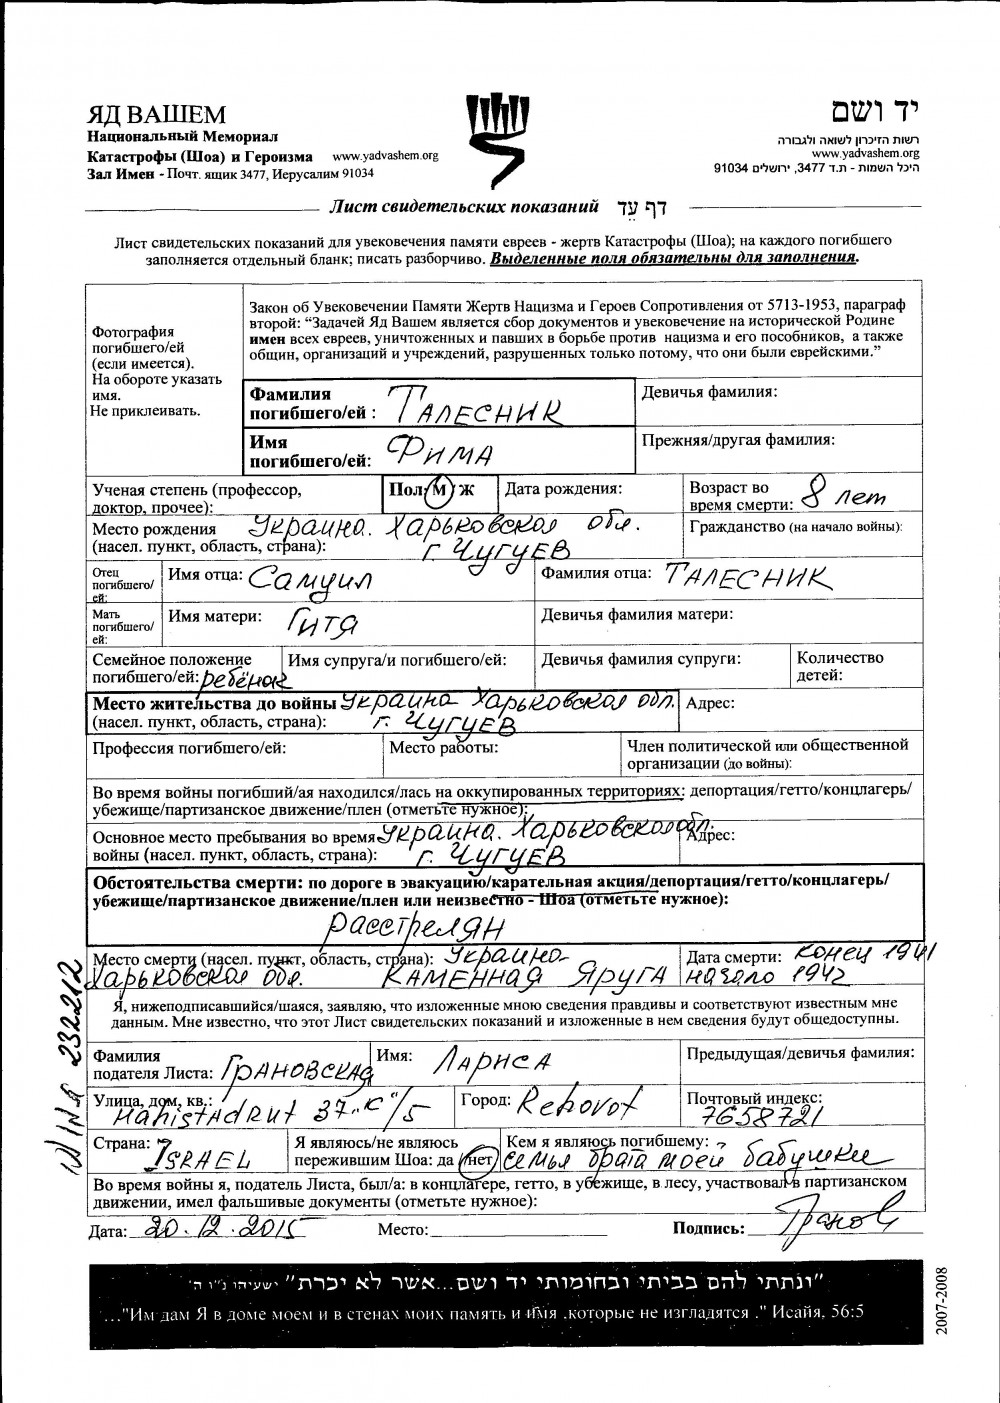 ЯД ВАШЕМ
Национальный Мемориал
Катастрофы (Шоа) и Героизма www.yadvashem.org
Зал Имен - Почт. ящик 3477, Иерусалим 91034
יד ושם
רשות הזיכרון לשואה ולגבורה
www.yadvashem.org
היכל השמות - ת.ד 3477, ירושלים 91034
Лист свидетельских показаний דף עֵד
Лист свидетельских показаний для увековечения памяти евреев - жертв Катастрофы (Шоа); на каждого погибшего
заполняется отдельный бланк; писать разборчиво. Выделенные поля обязательны для заполнения.
Фотография
погибшего/ей
(если имеется).
На обороте указать
имя.
Не приклеивать.
Закон об Увековечении Памяти Жертв Нацизма и Героев Сопротивления от 5713-1953, параграф
второй: “Задачей Яд Вашем является сбор документов и увековечение на исторической Родине
имен всех евреев, уничтоженных и павших в борьбе против нацизма и его пособников, а также
общин, организаций и учреждений, разрушенных только потому, что они были еврейскими.”
Фамилия
погибшего/ей : Талесник
Девичья фамилия:
Имя
погибшего/ей: Фима
Прежняя/другая фамилия:
Ученая степень (профессор,
доктор, прочее):
Пол: М Ж
Дата рождения:
Возраст во
время смерти: 8 лет
Место рождения Украина. Харьковская обл.
(насел. пункт, область, страна): г. Чугуев
Гражданство (на начало войны):
Отец
погибшего/
ей:
Имя отца: Самуил
Фамилия отца: Талесник
Мать
погибшего/
ей:
Имя матери: Гитя
Девичья фамилия матери:
Семейное положение
погибшего/ей: ребёнок
Имя супруга/и погибшего/ей:
Девичья фамилия супруги:
Количество
детей:
Место жительства до войны Украина Харьковская обл.
(насел. пункт, область, страна): г. Чугуев
Адрес:
Профессия погибшего/ей:
Место работы:
Член политической или общественной
организации (до войны):
Во время войны погибший/ая находился/лась на оккупированных территориях: депортация/гетто/концлагерь/
убежище/партизанское движение/плен (отметьте нужное):
Основное место пребывания во время Украина. Харьковская обл.
войны (насел. пункт, область, страна): г. Чугуев
Адрес:
Обстоятельства смерти: по дороге в эвакуацию/карательная акция/депортация/гетто/концлагерь/
убежище/партизанское движение/плен или неизвестно - Шоа (отметьте нужное):
расстрелян
Место смерти (насел. пункт, область, страна): Украина
Харьковская обл. Каменная Яруга
Дата смерти: конец 1941
начало 1942
Я, нижеподписавшийся/шаяся, заявляю, что изложенные мною сведения правдивы и соответствуют известным мне
данным. Мне известно, что этот Лист свидетельских показаний и изложенные в нем сведения будут общедоступны.
Фамилия
подателя Листа: Грановская
Имя: Лариса
Предыдущая/девичья фамилия:
Улица, дом, кв.:
Hahistadrut 37 "K"/5
Город: Rehovot
Почтовый индекс:
7658721
Страна: Israel
Я являюсь/не являюсь
пережившим Шоа: да /нет
Кем я являюсь погибшему:
семья брата моей бабушки
Во время войны я, податель Листа, был/а: в концлагере, гетто, в убежище, в лесу, участвовал в партизанском
движении, имел фальшивые документы (отметьте нужное):
Дата: 20.12.2015
Место:
Подпись:
232212
"ונתתי להם בביתי ובחומותי יד ושם...אשר לא יכרת" ישעיהו נ"ו ה'
..."Им дам Я в доме моем и в стенах моих память и имя ,которые не изгладятся ." Исайя, 56:5
2007-2008